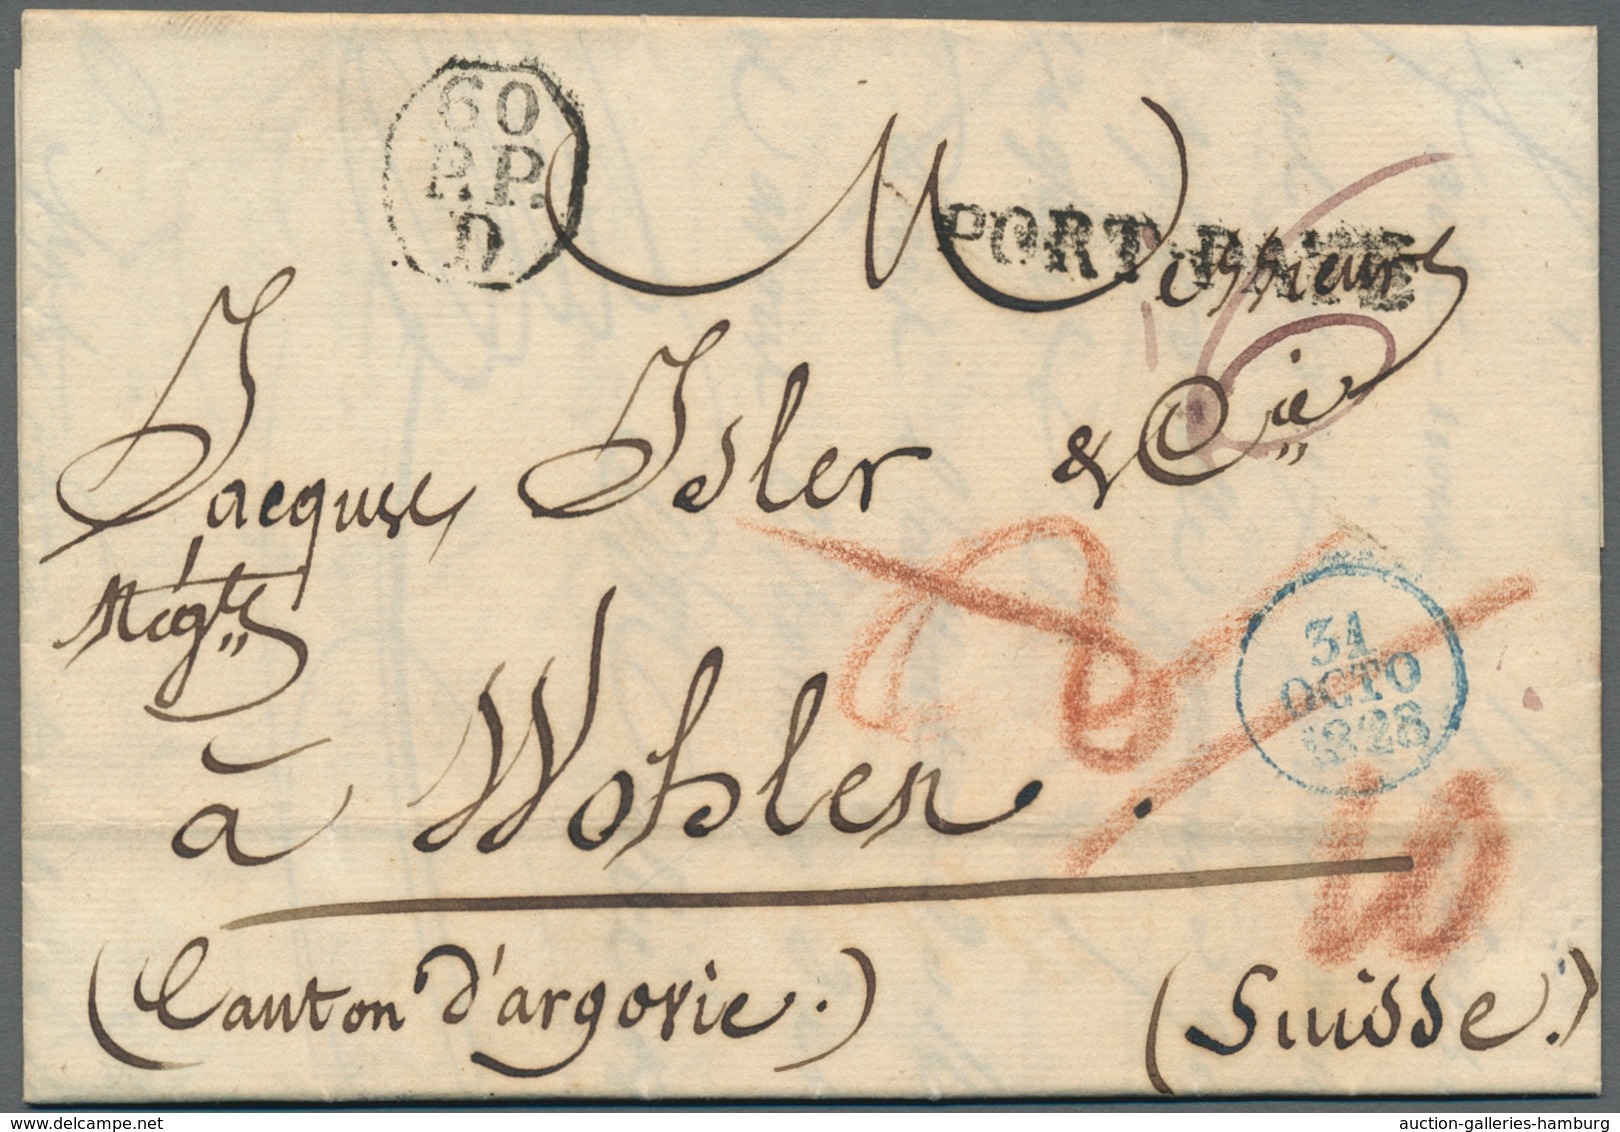 60
P.P.
D
Messieurs
PORT-PAYÉ
Jacques Isler & Cie
Négts
à Wohlen.
31
OCTO
1828
10
(Canton d'argovie.) (Suisse.)
auction-galleries-hamburg